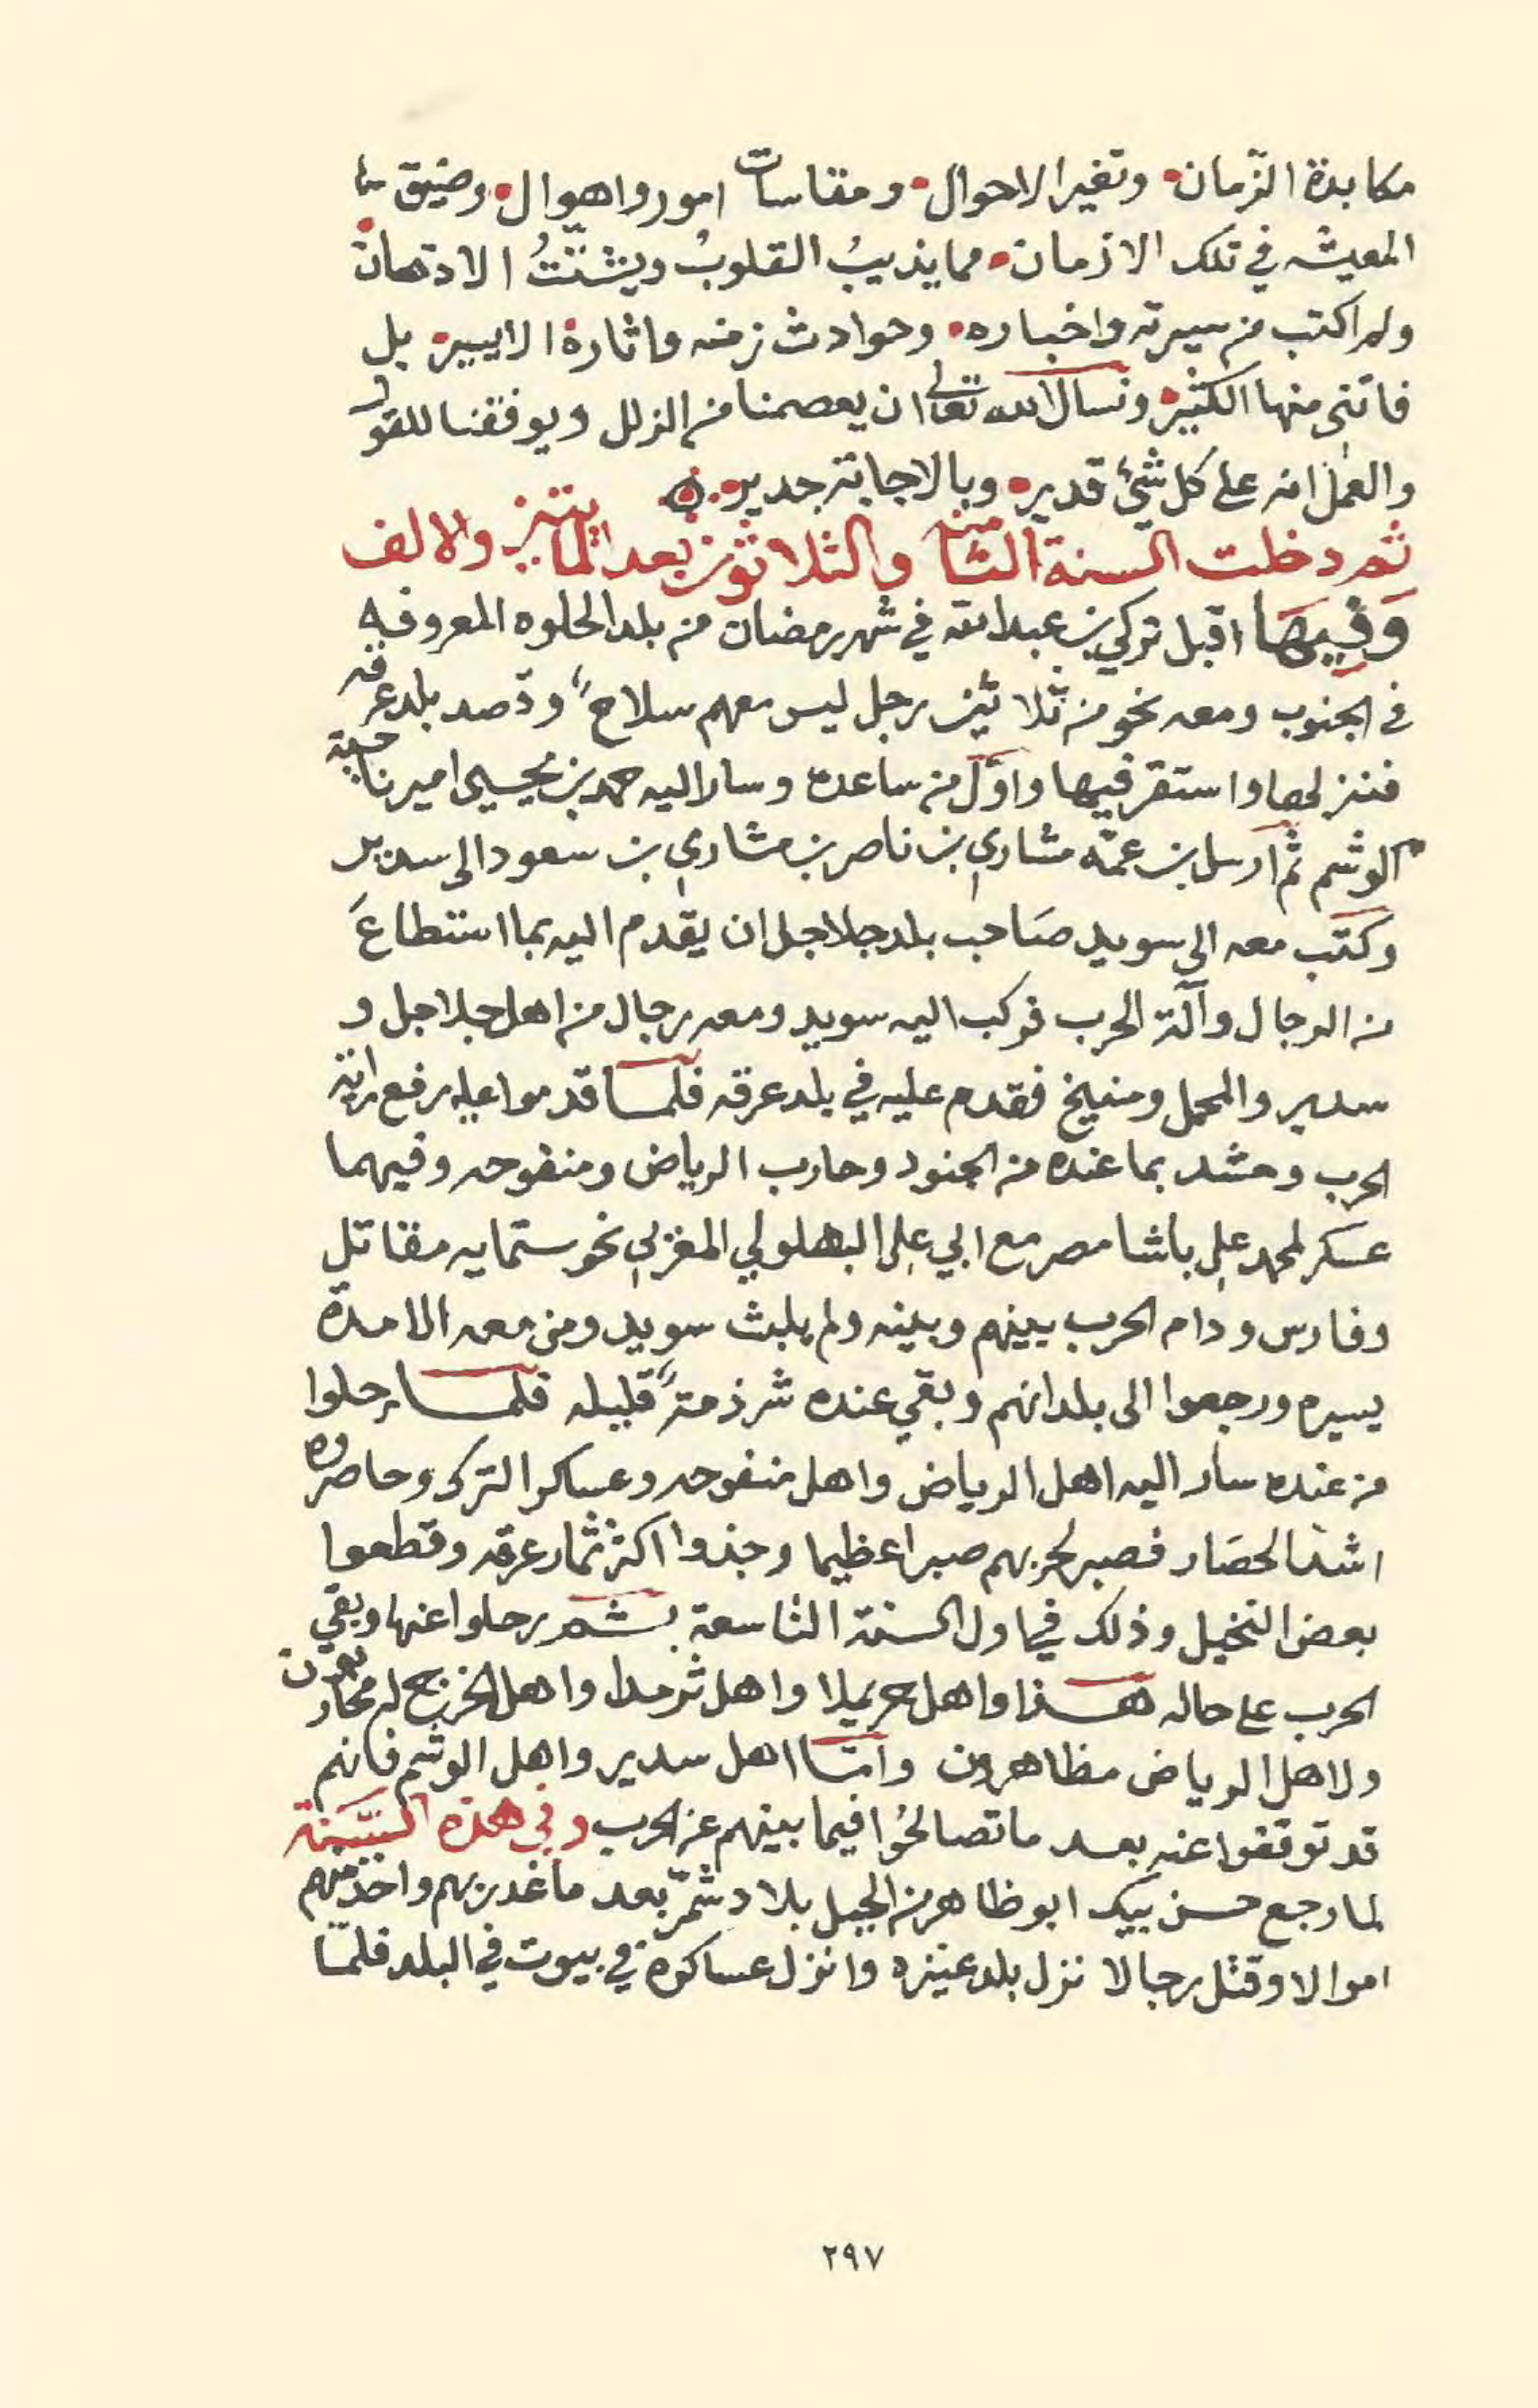 مكابدة الزّمان • وتغير الاحوال • ومقاسات امور واهوال • وضيق
المعيشه في تلك الازمان • مما يذيبُ القلوبُ ويشتّتُ الاذهان •
ولم اكتب من سيرته واخباره • وحوادث زمنه واثاره الا اليسير • بل
فاتنى منها الكثير • ونسال الله تعالى ان يعصمنا من الزلل ويوفقنا للقول
والعمل انه على كل شئٍ قدير • وبالاجابة جدير •
ثم دخلت السنة الثامنه والثلاثون بعد المايتين والالف
وَفيهَا اقبل تركي بن عبد الله في شهر رمضان من بلد الحلوه المعروفه
في الجنوب ومعه نحو من ثلاثين رجل ليس معهم سلاحٌ وقصد بلد عرقه
فنزلها واستقر فيها واوّل من ساعده وسار اليه حمد بن يحيى امير ناحية
الوشم ثم ارسل بن عمّه مشاري بن ناصر بن مشاري بن سعود الى سدير
وكتب معه الى سويد صَاحب بلد جلاجل ان يقدم اليه بما استطاعَ
من الرجال وآلة الحرب فركب اليه سويد ومعه رجال من اهل جلاجل و
سدير والمحمل ومنيخ فقدم عليه في بلد عرقه فلمـا قدموا عليه رفع راية
الحرب وحشد بما عنده من الجنود وحارب الرياض ومنفوحه وفيهما
عسكر لمحمد علي باشا مصر مع ابي علي البهلولي المغربي نحو ستمايه مقاتل
وفارس ودام الحرب بينهم وبينه ولم يلبث سويد ومن معه الا مدة
يسيره ورجعوا الى بلدانهم وبقي عنده شرذمةً قليله فلمـا رحلوا
من عنده سار اليه اهل الرياض واهل منفوحه وعساكر الترك وحاصروه
اشد الحصَار فصبر لحربهم صبرا عظيما وجذوا اكثر ثمار عرقه وقطعوا
بعض النخيل وذلك في اول السنة التاسعة ثـم رحلوا عنها وبقي
الحرب على حاله هـذا واهل حريملا واهل ثرمدا واهل الخرج له محاربون
ولاهل الرياض مظاهرون وامّا اهل سدير واهل الوشم فانهم
قد توقفوا عنه بعد ما تصالحُوا فيما بينهم عن الحرب وفي هذه السَّنة
لما رجع حسن بيك ابو ظاهر من الجبل بلاد شمّر بعد ما غدر بهم واخذ منهم
اموالا وقتل رجالا نزل بلد عنيزه وانزل عساكره في بيوت في البلد فلمّا
٢٩٧